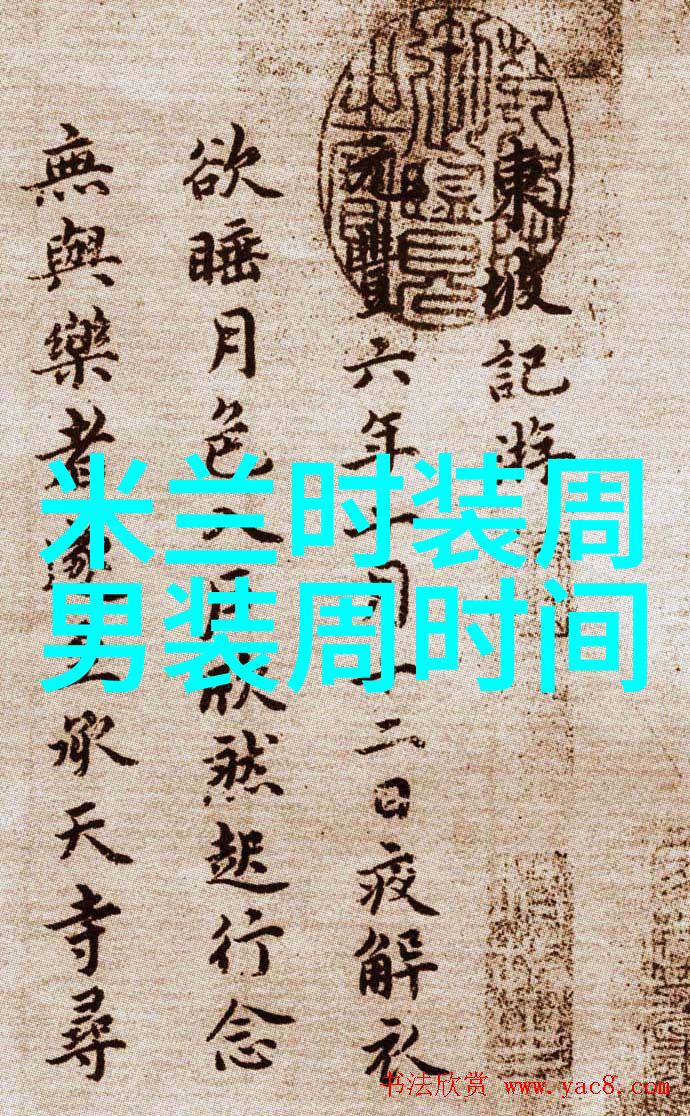 東坡記游
元豐六年十月十二日夜解衣
欲睡月色入户欣然起行念
無與樂者遂至承天寺尋
米兰时装周
男装周时间
书法欣赏 www.yac8.com